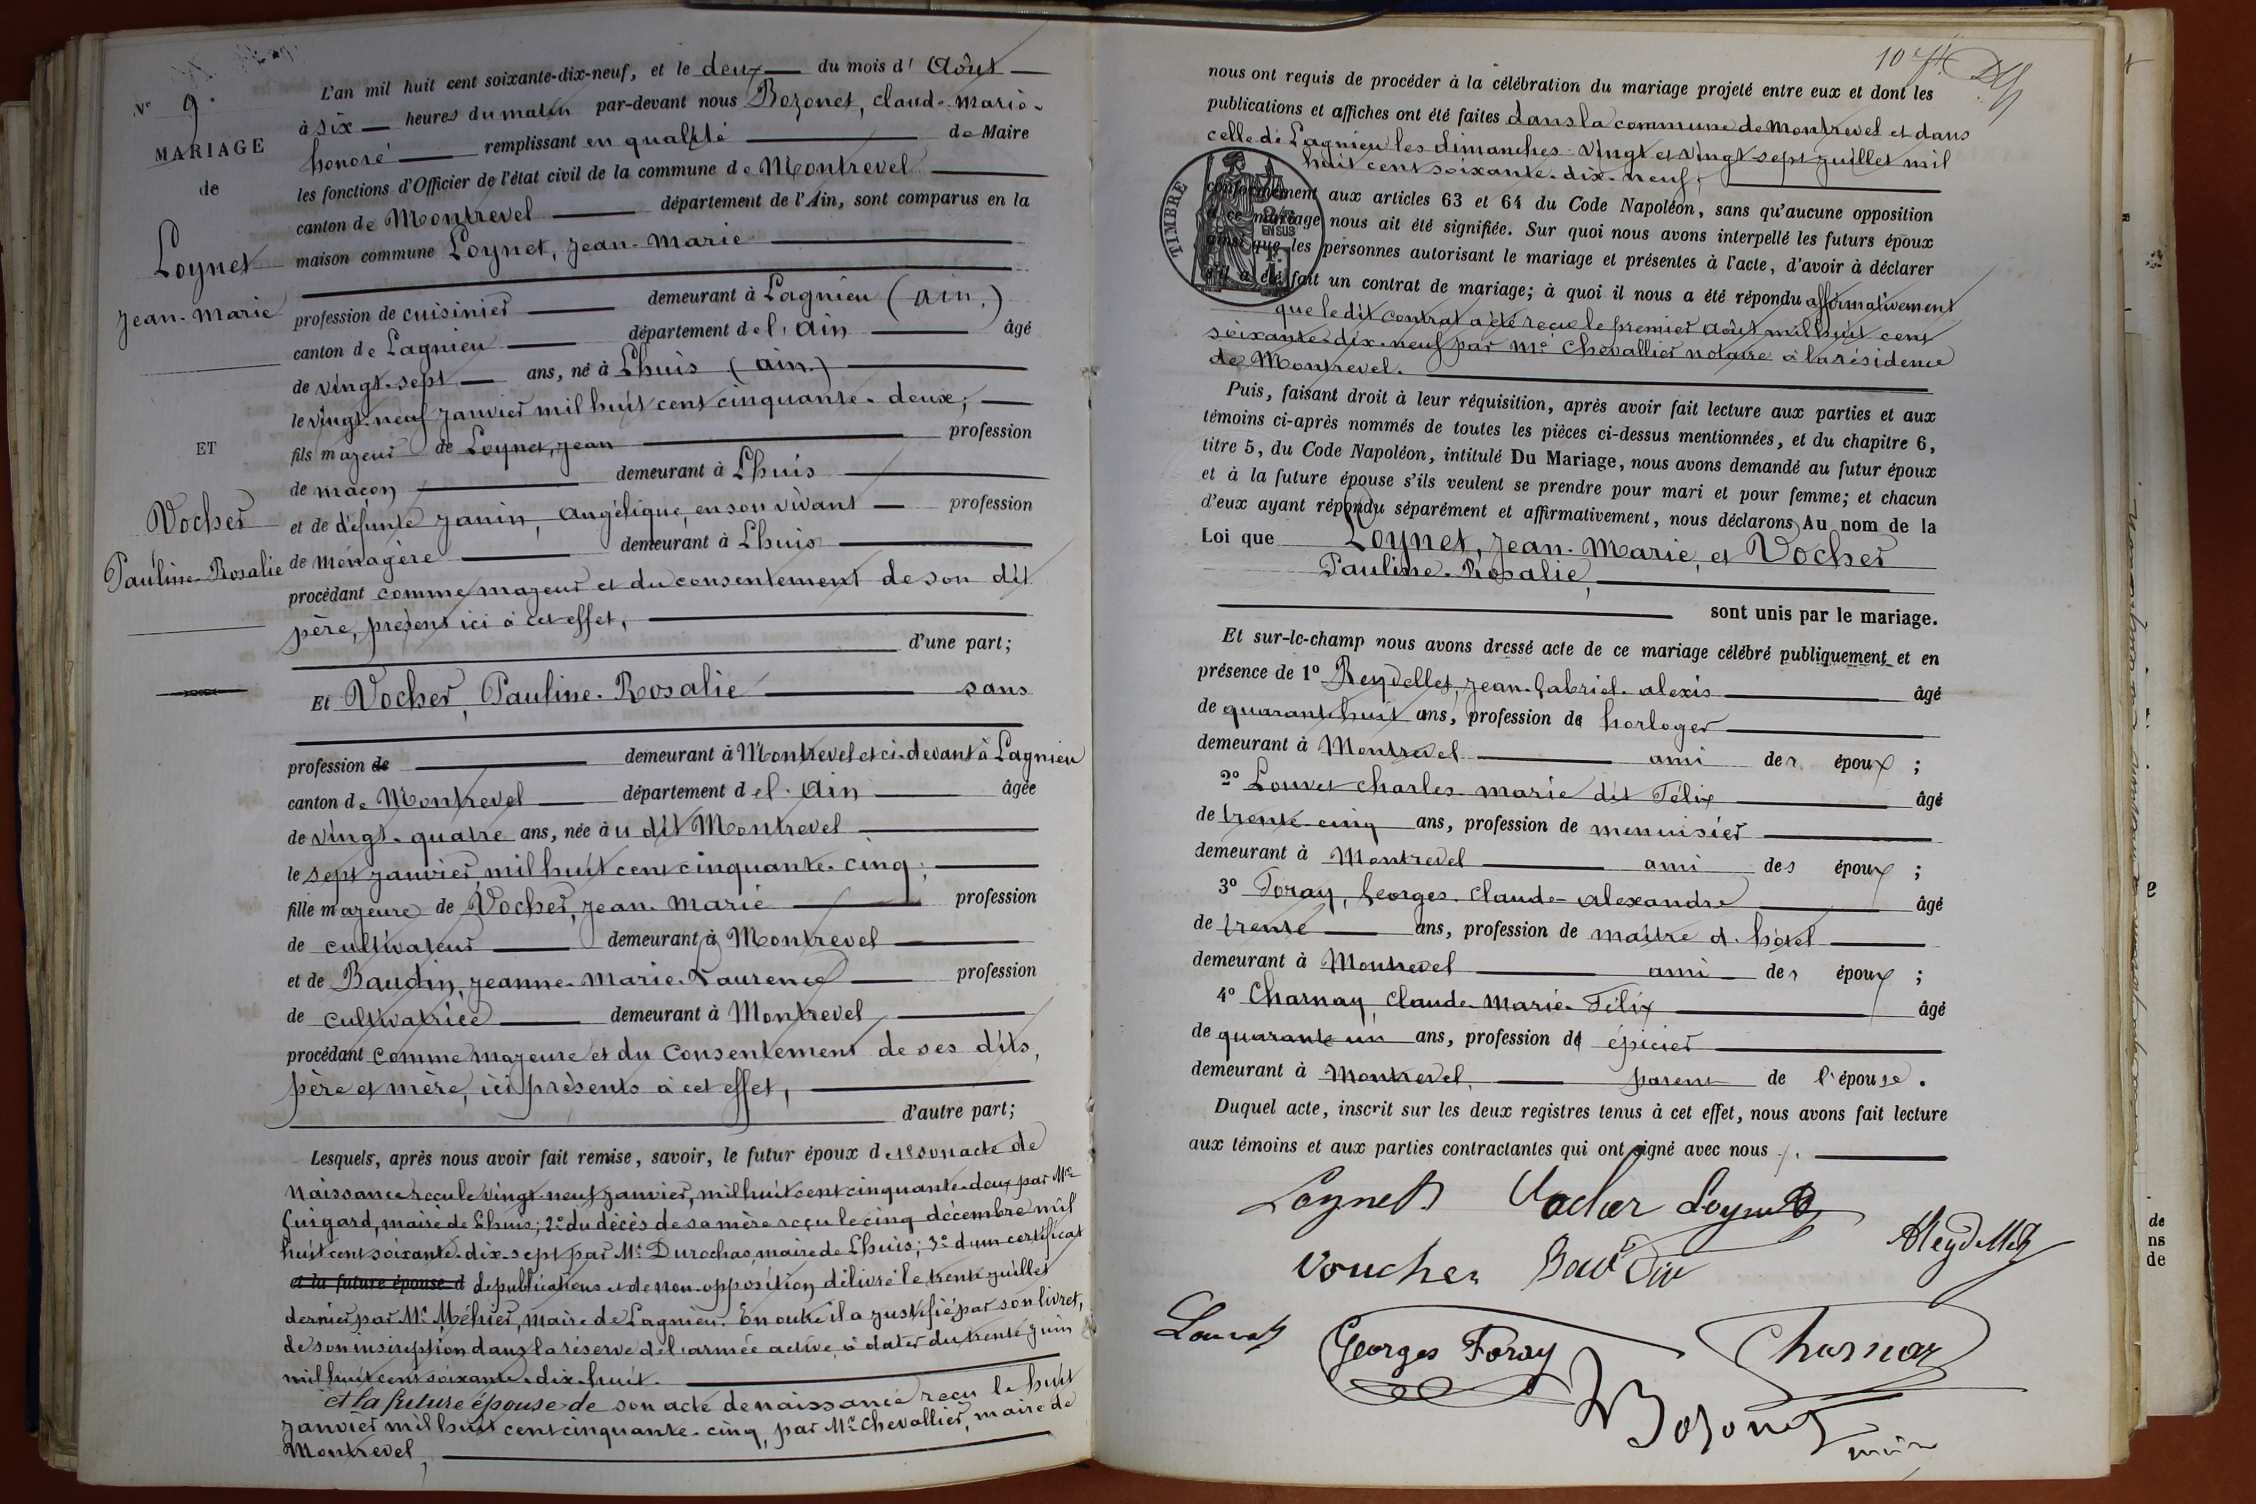 N° 9.
MARIAGE
de
Loynet
Jean-Marie
ET
Vocher
Pauline-Rosalie
L'an mil huit cent soixante-dix-neuf, et le deux du mois d' Août
à six heures du matin par-devant nous Bozonet, claude-marie-
honoré remplissant en qualité de Maire
les fonctions d'Officier de l'état civil de la commune de Montrevel
canton de Montrevel département de l'Ain, sont comparus en la
maison commune Loynet, Jean-Marie
profession de cuisinier demeurant à Lagnieu (ain.)
canton de Lagnieu département de l'Ain âgé
de vingt-sept ans, né à Lhuis (ain.)
le vingt-neuf janvier mil huit cent cinquante-deux,
fils majeur de Loynet, jean profession
de maçon demeurant à Lhuis
et de défunte Janin, angélique, en son vivant profession
de ménagère demeurant à Lhuis
procédant comme majeur et du consentement de son dit
père, présent ici à cet effet,
d'une part;
Et Vocher, Pauline-Rosalie sans
profession de demeurant à Montrevel et ci-devant à Lagnieu
canton de Montrevel département de l'Ain âgée
de vingt-quatre ans, née au dit Montrevel
le sept janvier mil huit cent cinquante-cinq,
fille majeure de Vocher, jean-marie profession
de cultivateur demeurant à Montrevel
et de Baudin, jeanne-marie-Laurence profession
de cultivatrice demeurant à Montrevel
procédant comme majeure et du consentement de ses dits,
père et mère, ici présents à cet effet,
d'autre part;
Lesquels, après nous avoir fait remise, savoir, le futur époux de 1° son acte de
naissance reçu le vingt-neuf janvier, mil huit cent cinquante-deux par Mr
Guigard, maire de Lhuis; 2° du décès de sa mère reçu le cinq décembre mil
huit cent soixante-dix-sept par Mr Durochas maire de Lhuis; 3° d'un certificat
et la future épouse d de publications et de non-opposition délivré le trente juillet
dernier par Mr Méhier, maire de Lagnieu. En outre il a justifié par son livret,
de son inscription dans la réserve de l'armée active à dater du trente juin
mil huit cent soixante-dix-huit.
et la future épouse de son acte de naissance reçu le huit
janvier mil huit cent cinquante-cinq, par Mr Chevallier, maire de
Montrevel,
10
nous ont requis de procéder à la célébration du mariage projeté entre eux et dont les
publications et affiches ont été faites dans la commune de Montrevel et dans
celle de Lagnieu les dimanches vingt et vingt sept juillet mil
huit cent soixante-dix-neuf,
TIMBRE
EN SUS
conformément aux articles 63 et 64 du Code Napoléon, sans qu'aucune opposition
à ce mariage nous ait été signifiée. Sur quoi nous avons interpellé les futurs époux
ainsi que les personnes autorisant le mariage et présentes à l'acte, d'avoir à déclarer
s'il a été fait un contrat de mariage; à quoi il nous a été répondu affirmativement
que le dit contrat a été reçu le premier août mil huit cent
soixante-dix-neuf par Me Chevallier notaire à la résidence
de Montrevel.
Puis, faisant droit à leur réquisition, après avoir fait lecture aux parties et aux
témoins ci-après nommés de toutes les pièces ci-dessus mentionnées, et du chapitre 6,
titre 5, du Code Napoléon, intitulé Du Mariage, nous avons demandé au futur époux
et à la future épouse s'ils veulent se prendre pour mari et pour femme; et chacun
d'eux ayant répondu séparément et affirmativement, nous déclarons Au nom de la
Loi que Loynet, Jean-Marie, et Vocher
Pauline-Rosalie,
sont unis par le mariage.
Et sur-le-champ nous avons dressé acte de ce mariage célébré publiquement et en
présence de 1° Reydellet, Jean-Gabriel-alexis âgé
de quarant-huit ans, profession de horloger
demeurant à Montrevel ami des époux ;
2° Louvet charles-marie dit Félix âgé
de trente cinq ans, profession de menuisier
demeurant à Montrevel ami des époux ;
3° Foray, Georges-Claude-alexandre âgé
de trente ans, profession de maître d'hôtel
demeurant à Montrevel ami des époux ;
4° Charnay, claude-marie-Félix âgé
de quarante un ans, profession de épicier
demeurant à Montrevel, parent de l'épouse.
Duquel acte, inscrit sur les deux registres tenus à cet effet, nous avons fait lecture
aux témoins et aux parties contractantes qui ont signé avec nous.
Loynet Vocher Loynet
Voucher Baudin AReydellet
Louvet Georges Foray Charnay
Bozonet maire
de
ns
de